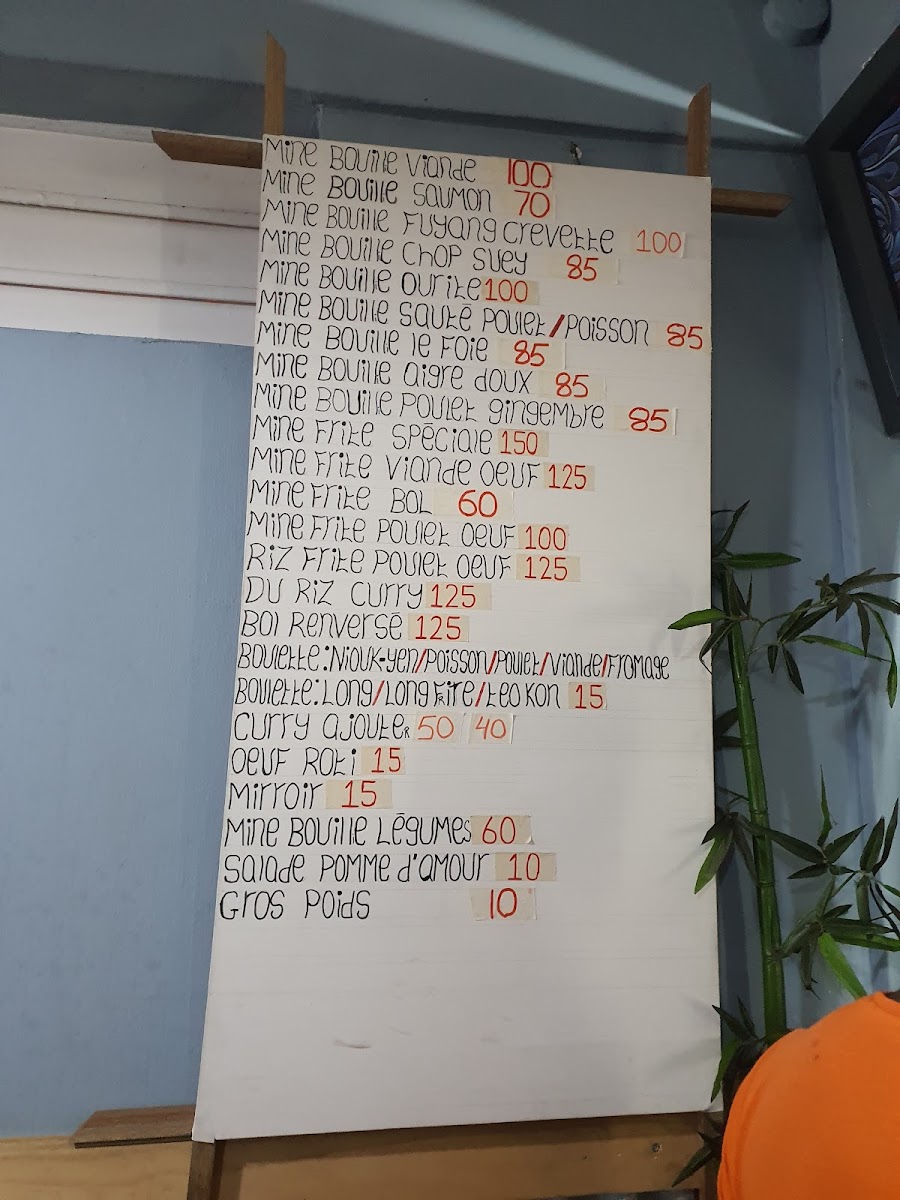 Mine Bouille Viande 100
Mine Bouille Saumon 70
Mine Bouille Fuyang Crevette 100
Mine Bouille Chop Suey 85
Mine Bouille Ourite 100
Mine Bouille Sauté Poulet/Poisson 85
Mine Bouille le Foie 85
Mine Bouille aigre doux 85
Mine Bouille Poulet gingembre 85
Mine Frite Spéciale 150
Mine Frite Viande Oeuf 125
Mine Frite BOL 60
Mine Frite Poulet Oeuf 100
Riz Frite Poulet Oeuf 125
Du Riz Curry 125
Bol Renversé 125
Boulette: Niouk-yen/Poisson/Poulet/Viande/Fromage
Boulette: Long/Long Frire/teo kon 15
Curry ajouter 50 40
Oeuf Roti 15
Mirroir 15
Mine Bouille Légumes 60
Salade Pomme d'amour 10
Gros Poids 10